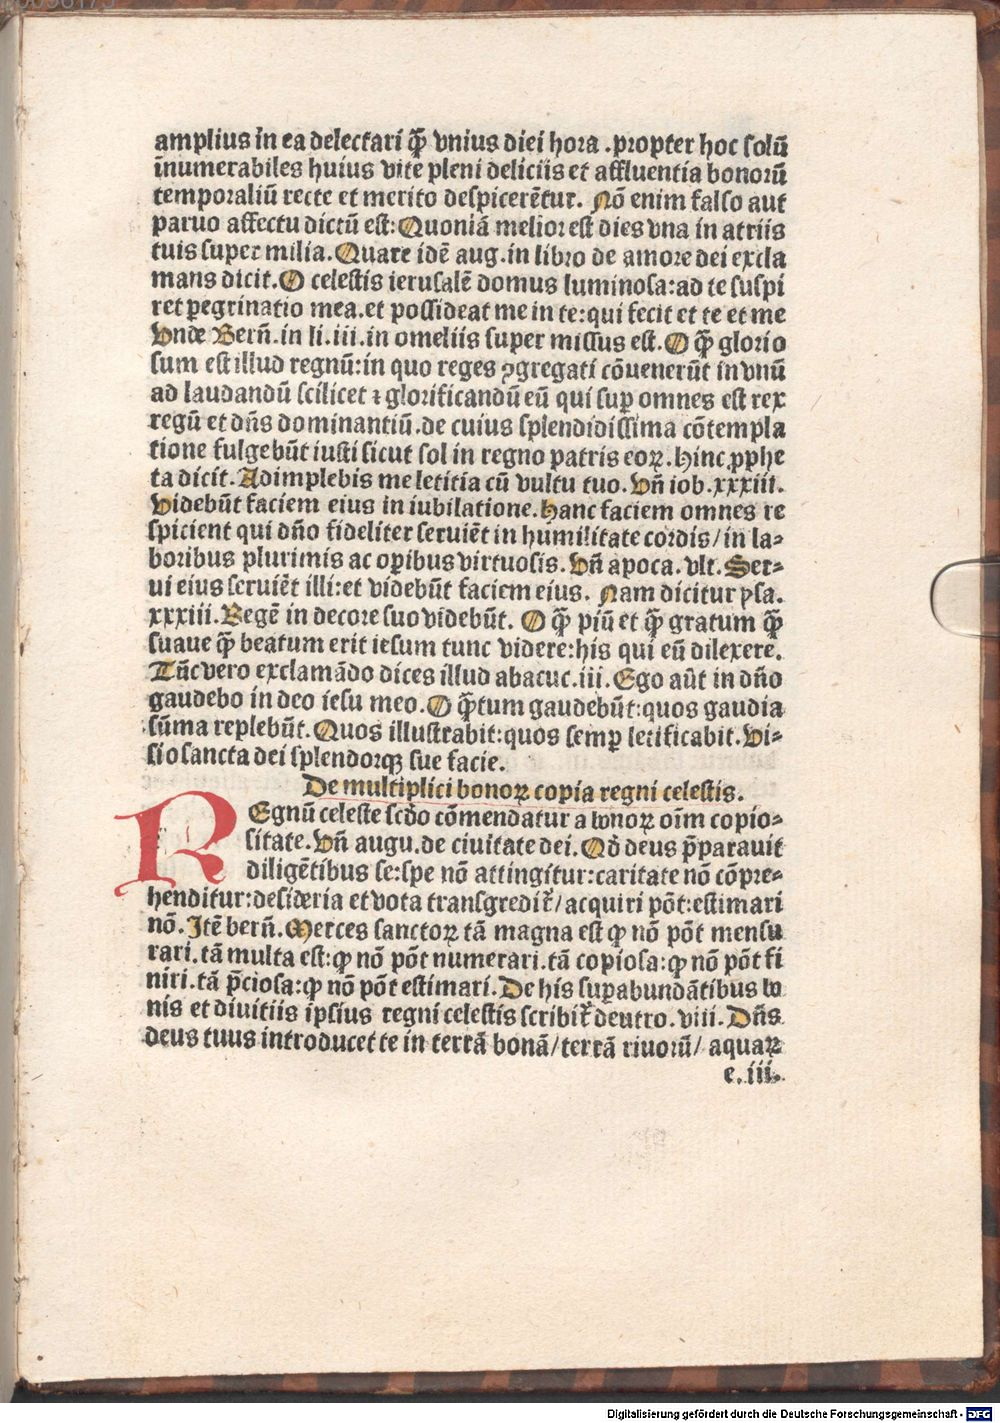 amplius in ea delectari q̄ vnius diei hora .propter hoc solū
īnumerabiles huius vite pleni deliciis et affluentia bonorū
temporaliū recte et merito despicerētur. Nō enim falso aut
paruo affectu dictū est: Quoniā melior est dies vna in atriis
tuis super milia. Quare idē aug. in libro de amore dei excla
mans dicit. O celestis ierusalē domus luminosa: ad te suspi
ret ꝑegrinatio mea. et possideat me in te: qui fecit et te et me
Vnde Berñ. in li. iii. in omeliis super missus est. O q̄ glorio
sum est illud regnū: in quo reges ꝯgregati cōuenerūt in vnū
ad laudandū scilicet ⁊ glorificandū eū qui suꝑ omnes est rex
regū et dñs dominantiū. de cuius splendidissima cōtempla
tione fulgebūt iusti sicut sol in regno patris eoꝝ. Hinc ꝓphe
ta dicit. Adimplebis me letitia cū vultu tuo. Vñ iob. xxxiii.
Videbūt faciem eius in iubilatione. Hanc faciem omnes re
spicient qui dño fideliter seruiēt in humilitate cordis/ in la-
boribus plurimis ac oꝑibus virtuosis. Vñ apoca. vlt. Ser-
ui eius seruiēt illi: et videbūt faciem eius. Nam dicitur ysa.
xxxiii. Regē in decore suo videbūt. O q̄ piū et q̄ gratum q̄
suaue q̄ beatum erit iesum tunc videre: his qui eū dilexere.
Tūc vero exclamādo dices illud abacuc. iii. Ego aūt in dño
gaudebo in deo iesu meo. O q̄tum gaudebūt: quos gaudia
sūma replebūt. Quos illustrabit: quos semꝑ letificabit. Vi-
sio sancta dei splendorqꝫ sue facie.
De multiplici bonoꝝ copia regni celestis.
REgnū celeste scḋo cōmendatur a bonoꝝ oīm copio-
sitate. Vñ augu. de ciuitate dei. Qḋ deus p̄parauit
diligētibus se: spe nō attingitur: caritate nō cōpre-
henditur: desideria et vota transgredit̃/ acquiri pōt: estimari
nō. Itē berñ. Merces sanctoꝝ tā magna est ꝙ nō pōt mensu
rari. tā multa est: ꝙ nō pōt numerari. tā copiosa: ꝙ nō pōt fi
niri. tā p̄ciosa: ꝙ nō pōt estimari. De his suꝑabundātibus bo
nis et diuitiis ipsius regni celestis scribit̃ deutro. viii. Dñs
deus tuus introducet te in terrā bonā/ terrā riuorū/ aquaꝝ
e. iii.
Digitalisierung gefördert durch die Deutsche Forschungsgemeinschaft - DFG